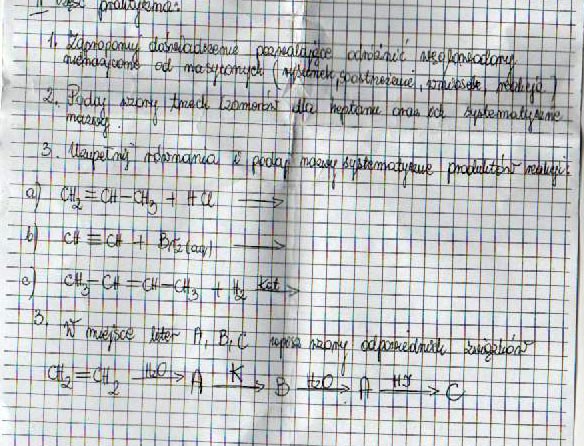 II część praktyczna:
1. Zaproponuj doświadczenie pozwalające odróżnić węglowodory
nienasycone od nasyconych (rysunek, spostrzeżenie, wniosek, reakcja)
2. Podaj wzory trzech izomerów dla heptanu oraz ich systematyczne
nazwy.
3. Uzupełnij równania i podaj nazwy systematyczne produktów reakcji:
a) CH2=CH-CH3 + HCl →
b) CH≡CH + Br2(aq) →
c) CH3-CH=CH-CH3 + H2 Kat →
3. W miejsce liter A, B, C wpisz wzory odpowiednich związków
CH2=CH2 H2O → A K → B H2O → A HI → C